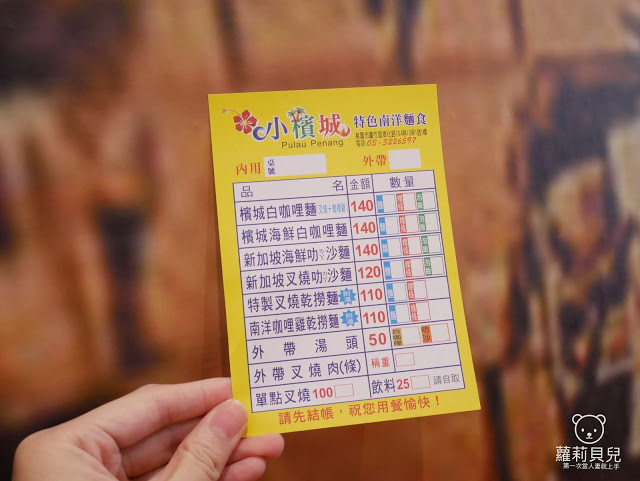 小檳城 特色南洋麵食
Pulau Penang
電話:03-3226597
內用 桌號 外帶
品名 金額 數量
檳城白咖哩麵 140
檳城海鮮白咖哩麵 140
新加坡海鮮叻沙麵 140
新加坡叉燒叻沙麵 120
特製叉燒乾撈麵 110
南洋咖哩雞乾撈麵 110
外帶湯頭 50
外帶叉燒肉(條) 稱重
單點叉燒 100 飲料25 請自取
請先結帳,祝您用餐愉快!
蘿莉貝兒
第一次當人妻就上手